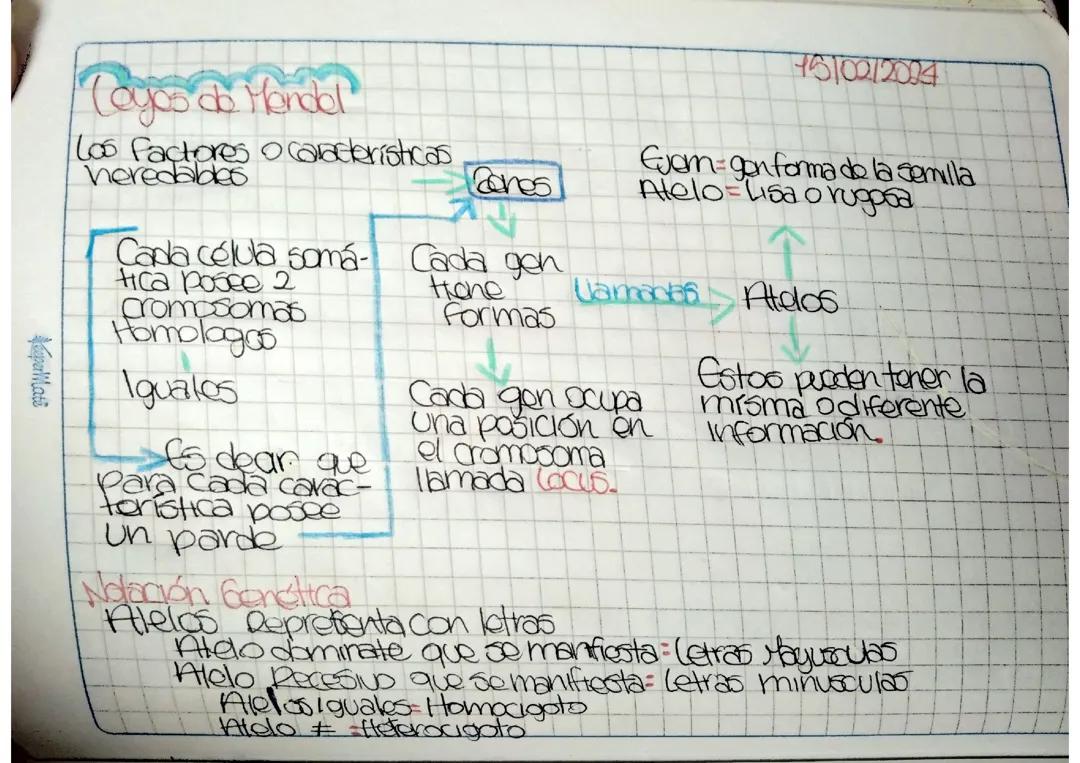 15/02/2024
Leyes de Mendel
Los factores o características
heredables
Genes
Ejem= gen forma de la semilla
Alelo= Lisa o rugosa
Cada célula somá-
tica posee 2
cromosomas
Homologos
Iguales
Es decir que
para cada carac-
terística posee
un par de
Cada gen
tiene
formas
Llamadas
Alelos
Cada gen ocupa
una posición en
el cromosoma
llamada Locus.
Estos pueden tener la
misma o diferente
información.
Notación Genética
Alelos Representa con letras
Alelo dominate que se manfiesta= Letras Mayusculas
Alelo Recesivo que se manifiesta= Letras minusculas
Alelos Iguales= Homocigoto
Alelo ≠ = Heterocigoto